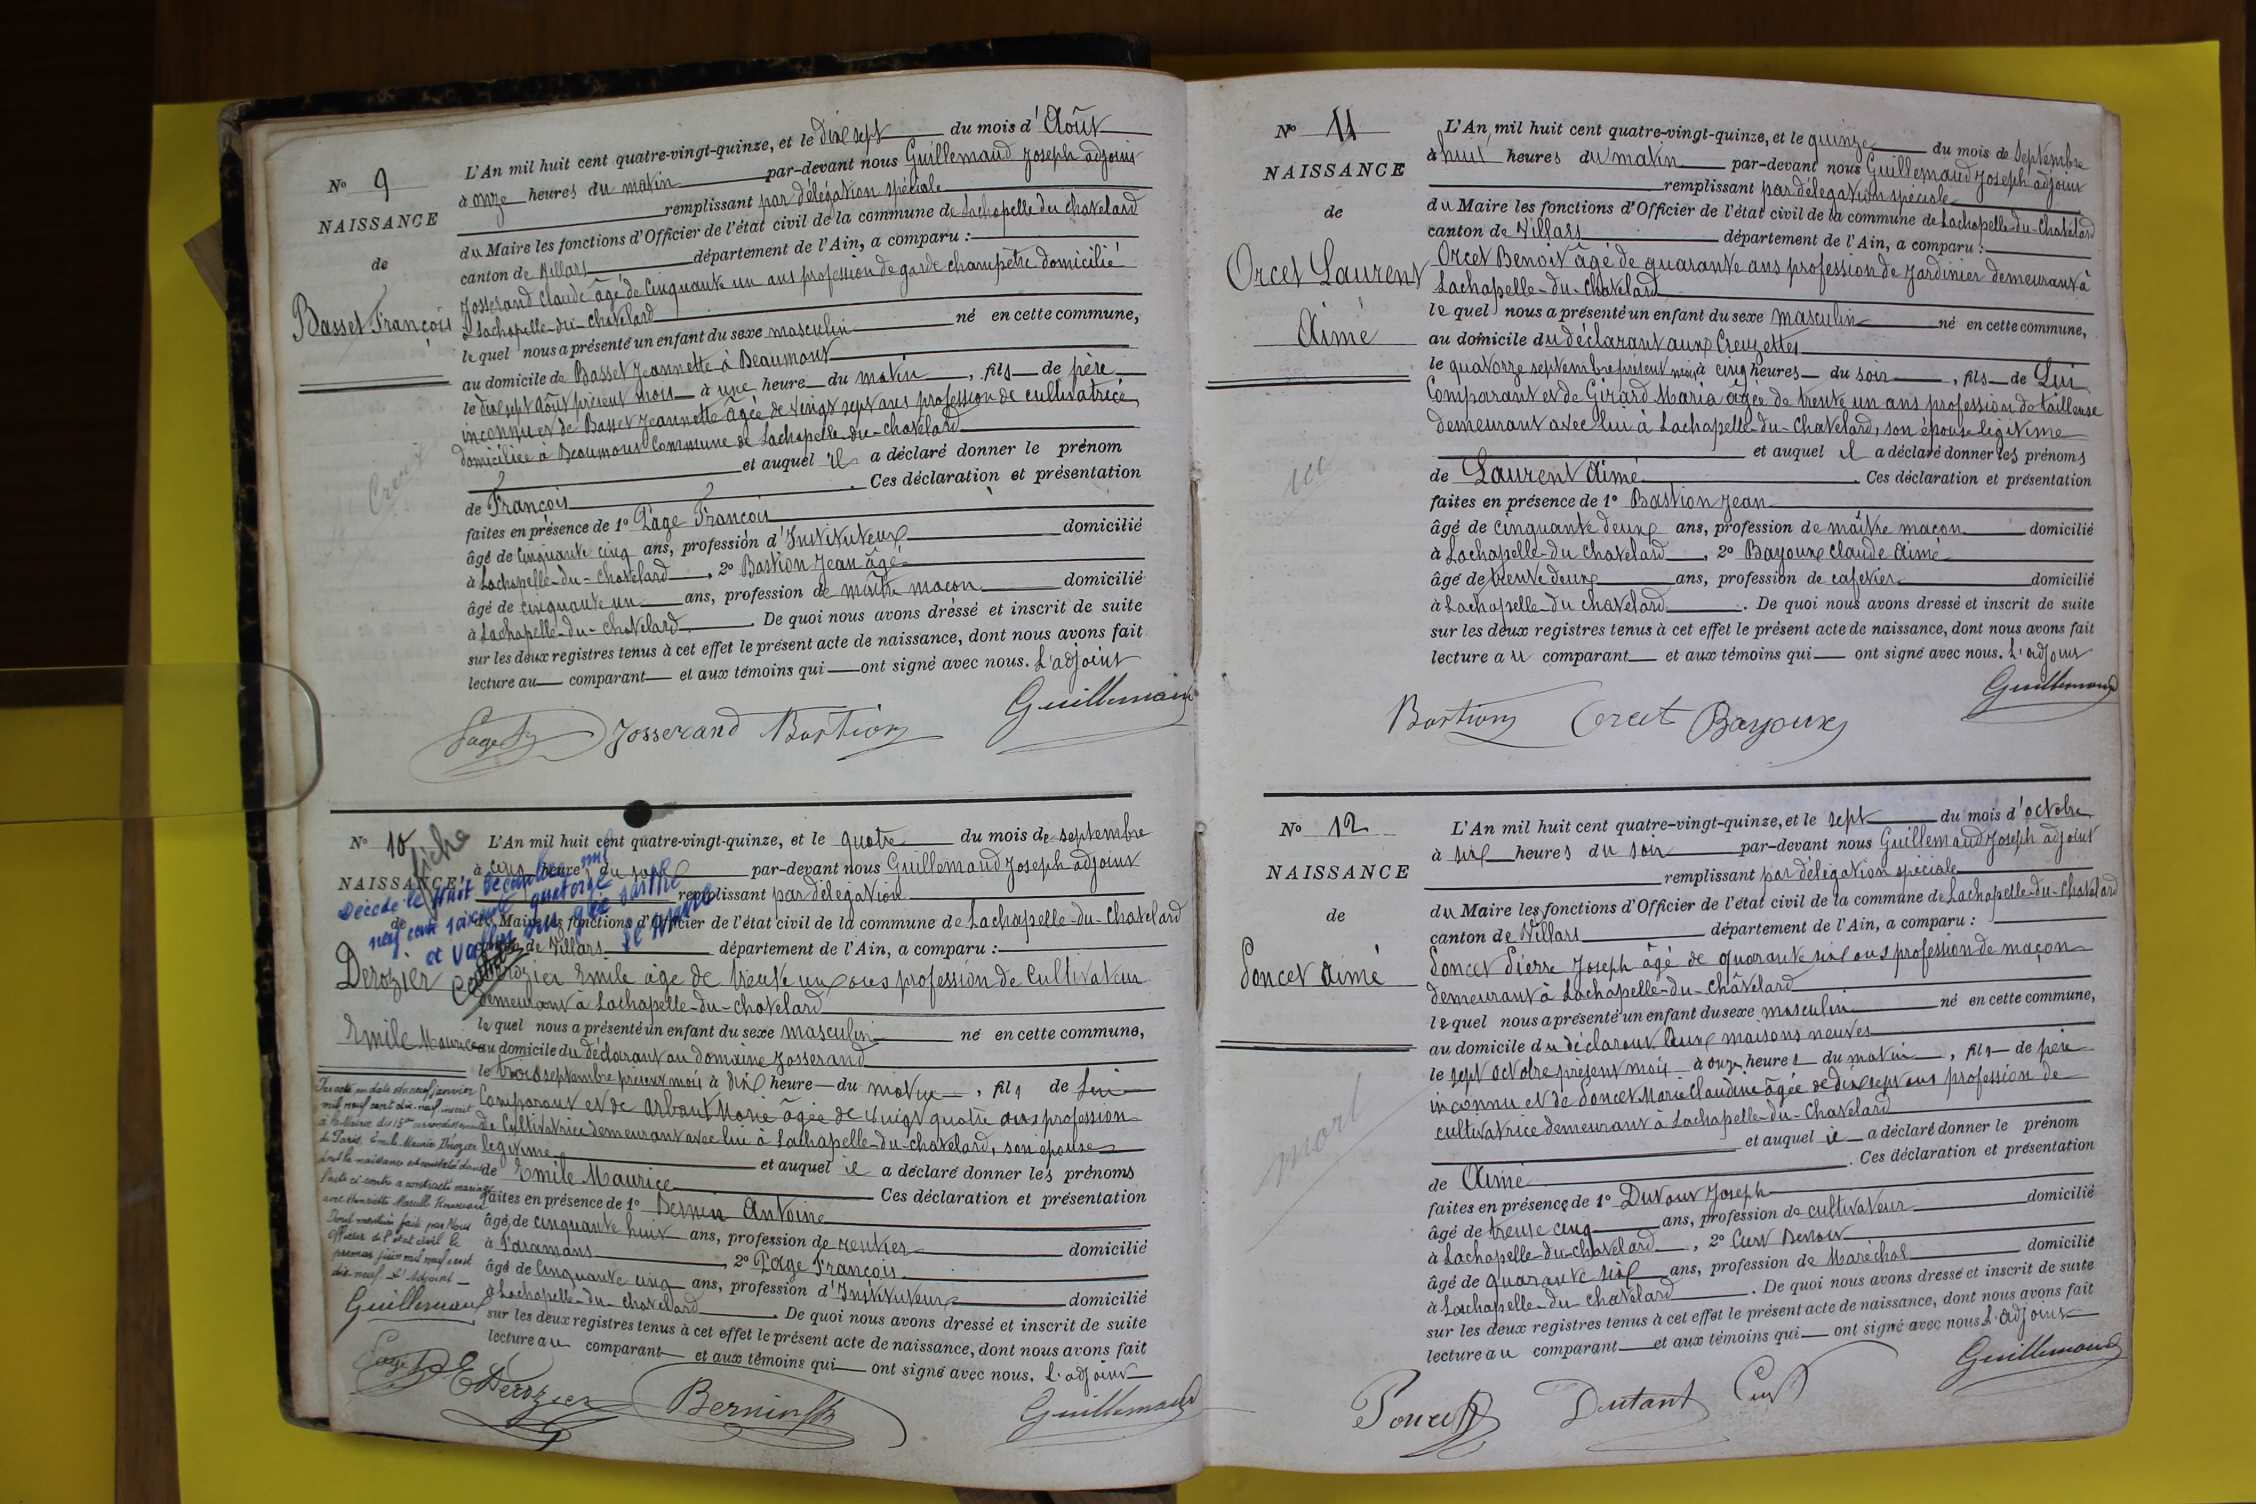 Nº 9
NAISSANCE
de
Basset François
L'An mil huit cent quatre-vingt-quinze, et le dix sept du mois d'Août
à onze heures du matin par-devant nous Guillemaud Joseph adjoint
remplissant par délégation spéciale
du Maire les fonctions d'Officier de l'état civil de la commune de Lachapelle du Chatelard
canton de Villars département de l'Ain, a comparu :
Josserand Claude âgé de Cinquante un ans profession de garde champêtre domicilié
à Lachapelle-du-Chatelard
le quel nous a présenté un enfant du sexe masculin né en cette commune,
au domicile de Basset Jeannette à Beaumont
le dix sept Août présent mois à une heure du matin, fils de père
inconnu et de Basset Jeannette âgée de vingt sept ans profession de cultivatrice
domiciliée à Beaumont Commune de Lachapelle-du-Chatelard
et auquel il a déclaré donner le prénom
de François Ces déclaration et présentation
faites en présence de 1º Page François
âgé de Cinquante cinq ans, profession d'Instituteur domicilié
à Lachapelle-du-Chatelard, 2º Bastion Jean âgé
âgé de cinquante un ans, profession de maître maçon domicilié
à Lachapelle-du-Chatelard. De quoi nous avons dressé et inscrit de suite
sur les deux registres tenus à cet effet le présent acte de naissance, dont nous avons fait
lecture au comparant et aux témoins qui ont signé avec nous. L'adjoint
Page Josserand Bastion Guillemaud
Nº 10
fiche
NAISSANCE
de
Décédé le huit décembre mil
neuf cent soixante quatorze
à
Derozier
Emile Maurice
L'An mil huit cent quatre-vingt-quinze, et le quatre du mois de septembre
à heure du par-devant nous Guillemaud Joseph adjoint
remplissant par délégation
du Maire les fonctions d'Officier de l'état civil de la commune de Lachapelle-du-Chatelard
canton de Villars département de l'Ain, a comparu :
Derozier Emile âgé de trente un ans profession de Cultivateur
demeurant à Lachapelle-du-Chatelard
le quel nous a présenté un enfant du sexe masculin né en cette commune,
au domicile du déclarant au domaine Josserand
le trois septembre présent mois à dix heure du matin, fils de lui
Comparant et de Arbant Marie âgée de vingt quatre ans profession
de Cultivatrice demeurant avec lui à Lachapelle-du-Chatelard, son épouse
légitime et auquel il a déclaré donner les prénoms
de Emile Maurice Ces déclaration et présentation
faites en présence de 1º Bernin Antoine
âgé de cinquante huit ans, profession de rentier domicilié
à Saramans, 2º Page François
âgé de Cinquante cinq ans, profession d'Instituteur domicilié
à Lachapelle-du-Chatelard. De quoi nous avons dressé et inscrit de suite
sur les deux registres tenus à cet effet le présent acte de naissance, dont nous avons fait
lecture au comparant et aux témoins qui ont signé avec nous. L'adjoint
Par acte en date du neuf janvier
mil neuf cent dix-neuf inscrit
à la Mairie du 13e arrondissement
de Paris, Emile Maurice Dérozier
dont la naissance est constatée dans
l'acte ci-contre a contracté mariage
avec Henriette Marcelle
Dont mention faite par Nous
Officier de l'état civil le
premier juin mil neuf cent
dix-neuf. L'Adjoint
Guillemaud
Page E Derozier Bernin Guillemaud
Nº 11
NAISSANCE
de
Orcet Laurent
Aimé
L'An mil huit cent quatre-vingt-quinze, et le quinze du mois de Septembre
à huit heures du matin par-devant nous Guillemaud Joseph adjoint
remplissant par délégation spéciale
du Maire les fonctions d'Officier de l'état civil de la commune de Lachapelle-du-Chatelard
canton de Villars département de l'Ain, a comparu :
Orcet Benoit âgé de quarante ans profession de Jardinier demeurant à
Lachapelle-du-Chatelard
le quel nous a présenté un enfant du sexe masculin né en cette commune,
au domicile du déclarant aux Creuzettes
le quatorze septembre présent mois à cinq heures du soir, fils de Lui
Comparant et de Girard Maria âgée de trente un ans profession de tailleuse
demeurant avec lui à Lachapelle-du-Chatelard, son épouse légitime
et auquel il a déclaré donner les prénoms
de Laurent Aimé. Ces déclaration et présentation
faites en présence de 1º Bastion Jean
âgé de cinquante deux ans, profession de maître maçon domicilié
à Lachapelle-du Chatelard, 2º Bayoux Claude Aimé
âgé de trente deux ans, profession de cafetier domicilié
à Lachapelle-du Chatelard. De quoi nous avons dressé et inscrit de suite
sur les deux registres tenus à cet effet le présent acte de naissance, dont nous avons fait
lecture au comparant et aux témoins qui ont signé avec nous. L'adjoint
Bastion Orcet Bayoux Guillemaud
Nº 12
NAISSANCE
de
Poncet Aimé
mort
L'An mil huit cent quatre-vingt-quinze, et le sept du mois d'octobre
à six heures du soir par-devant nous Guillemaud Joseph adjoint
remplissant par délégation spéciale
du Maire les fonctions d'Officier de l'état civil de la commune de Lachapelle-du-Chatelard
canton de Villars département de l'Ain, a comparu :
Poncet Pierre Joseph âgé de quarante six ans profession de maçon
demeurant à Lachapelle-du-Châtelard
le quel nous a présenté un enfant du sexe masculin né en cette commune,
au domicile du déclarant aux maisons neuves
le sept octobre présent mois à onze heures du matin, fils de père
inconnu et de Poncet Marie Claudine âgée de dix sept ans profession de
cultivatrice demeurant à Lachapelle-du-Chatelard
et auquel il a déclaré donner le prénom
de Aimé. Ces déclaration et présentation
faites en présence de 1º Dutour Joseph
âgé de trente cinq ans, profession de cultivateur domicilié
à Lachapelle-du-Chatelard, 2º Curt Benoit
âgé de quarante six ans, profession de Maréchal domicilié
à Lachapelle-du Chatelard. De quoi nous avons dressé et inscrit de suite
sur les deux registres tenus à cet effet le présent acte de naissance, dont nous avons fait
lecture au comparant et aux témoins qui ont signé avec nous. L'adjoint
Poncet Dutant Curt Guillemaud